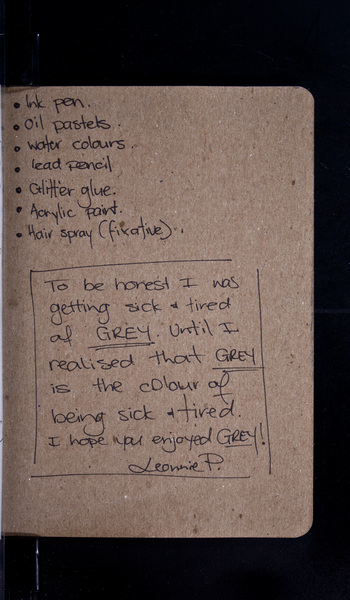 • Ink pen.
• Oil pastels.
• water colours.
• lead pencil
• Glitter glue.
• Acrylic paint.
• Hair spray (fixative).
To be honest I was
getting sick & tired
of GREY. Until I
realised that GREY
is the colour of
being sick & tired.
I hope you enjoyed GREY!
Leonnie P.